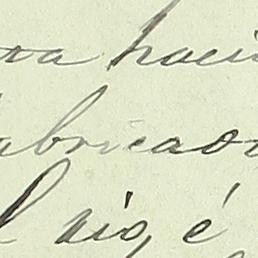 ra hacie
abricado
l rio, é